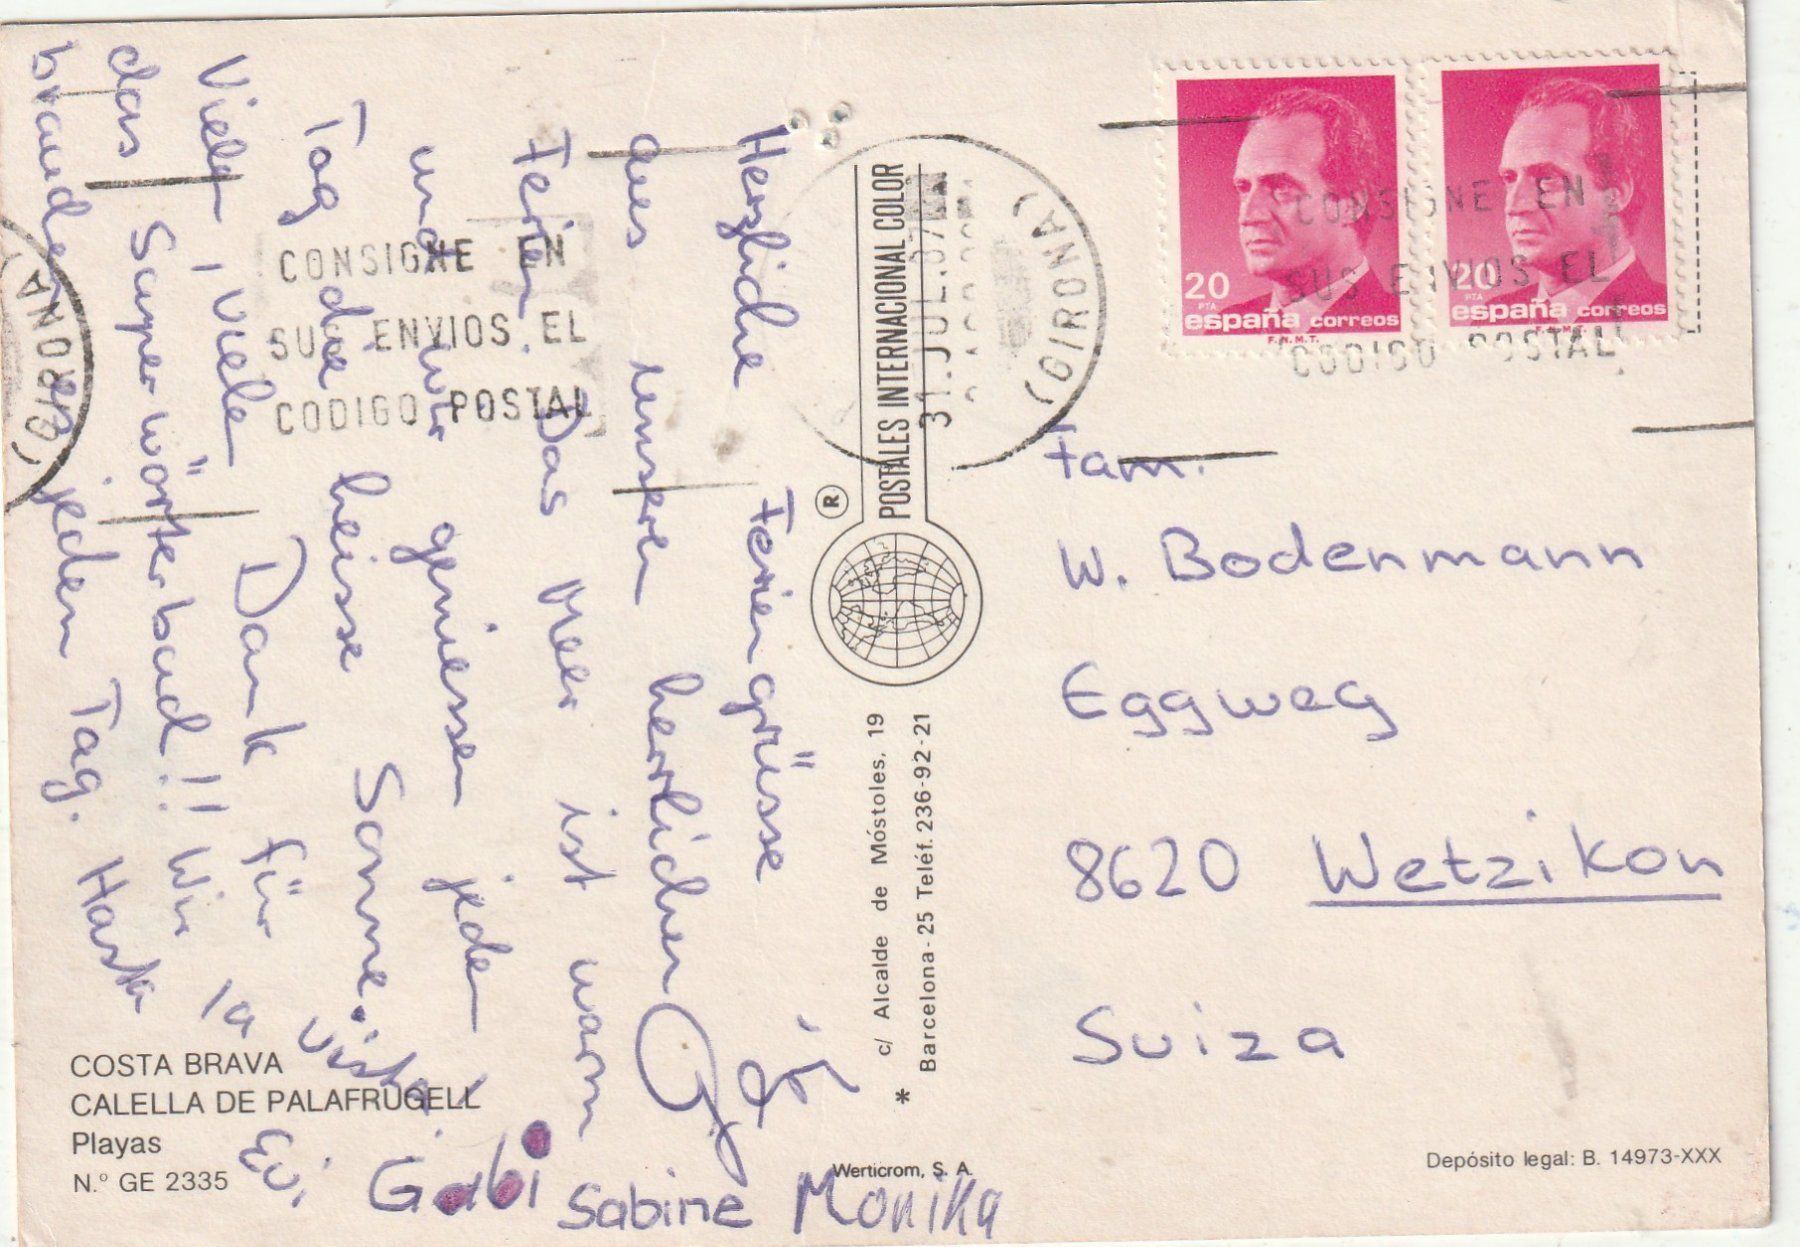 Herzliche Feriengrüsse
aus unseren herrlichen
Ferien. Das Meer ist warm
und wir geniessen jeden
Tag die heisse Sonne.
Vielen, viele Dank für
das Superwörterbuch!! Wir
brauchen es jeden Tag. Hasta
la vista!
Evi Gabi Sabine Monika
CONSIGNE EN
SUS ENVIOS EL
CODIGO POSTAL
(GIRONA)
COSTA BRAVA
CALELLA DE PALAFRUGELL
Playas
N.° GE 2335
POSTALES INTERNACIONAL COLOR
®
* c/ Alcalde de Móstoles, 19
Barcelona - 25 Teléf. 236-92-21
Werticrom, S. A.
31.JUL.87
(GIRONA)
20
PTA
españa correos
F.N.M.T.
20
PTA
españa correos
F.N.M.T.
CONSIGNE EN
SUS ENVIOS EL
CODIGO POSTAL
Fam.
W. Bodenmann
Eggweg
8620 Wetzikon
Suiza
Depósito legal: B. 14973-XXX